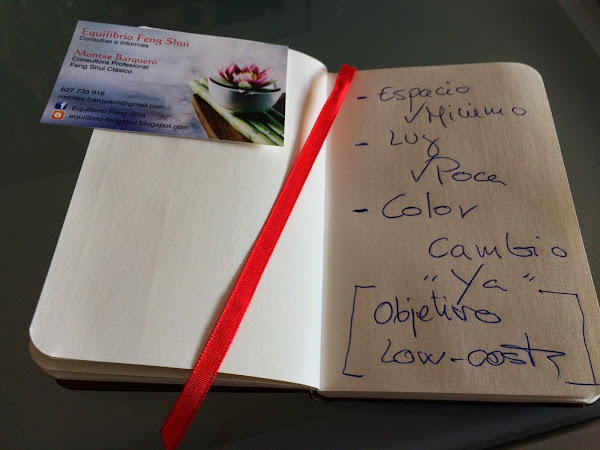 Equilibrio Feng Shui
Consultas e Informes
Montse Barquero
Consultora Profesional
Feng Shui Clásico
627 733 916
montse.barquero@gmail.com
Equilibrio Feng Shui
equilibrio-fengshui.blogspot.com
- Espacio
✓Mínimo
- Luz
✓Poca
- Color
Cambio
"Ya"
[Objetivo
Low-cost]